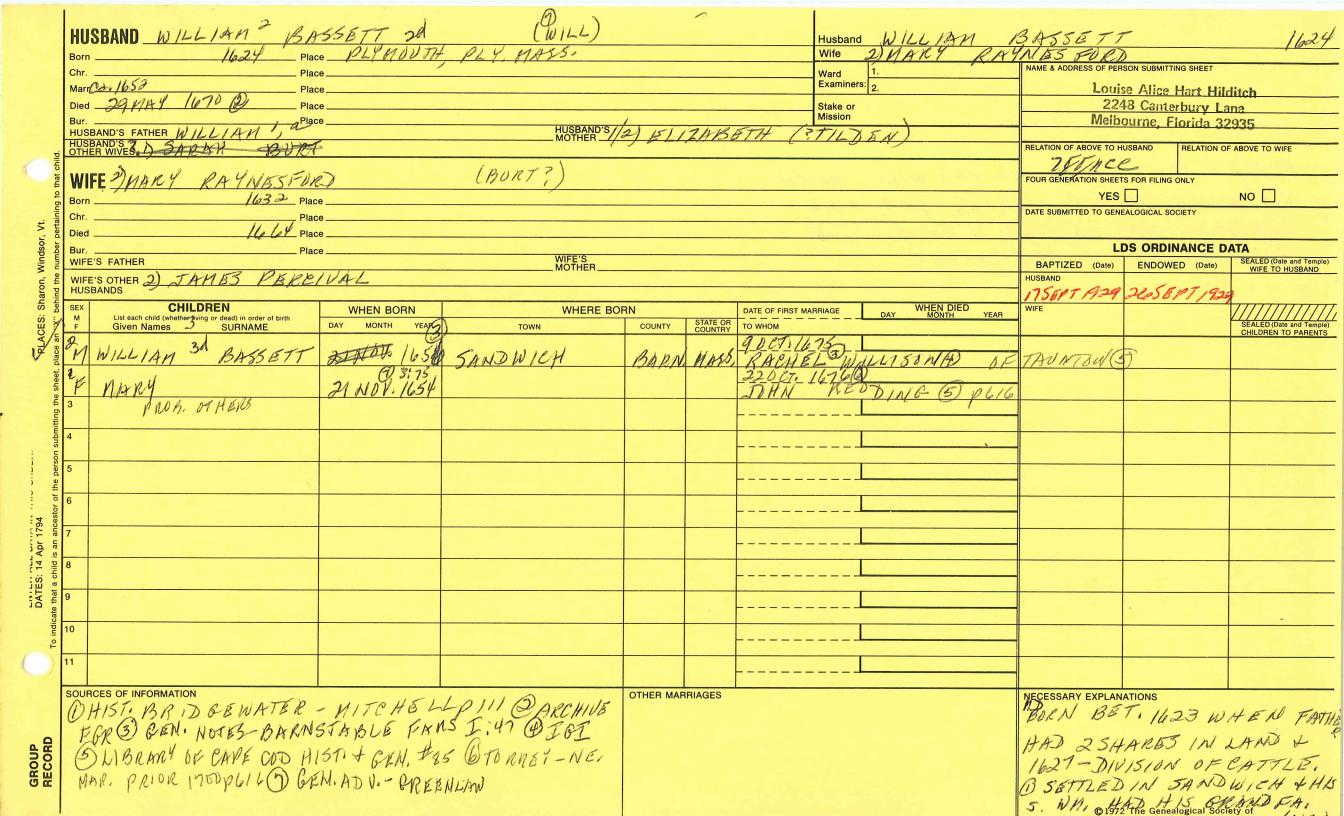 HUSBAND WILLIAM 2 BASSETT 2d (WILL) ⑦
Born 1624 Place PLYMOUTH, PLY. MASS.
Chr. Place
Marr. Ca. 1652 Place
Died 29 MAY 1670 ② Place
Bur. Place
HUSBAND'S FATHER WILLIAM 1, a HUSBAND'S MOTHER 1/2) ELIZABETH (?TILDEN)
HUSBAND'S OTHER WIVES SARAH BURT
WIFE MARY RAYNESFORD (BURT?)
Born 1632 Place
Chr. Place
Died 1664 Place
Bur. Place
WIFE'S FATHER WIFE'S MOTHER
WIFE'S OTHER HUSBANDS 2) JAMES PERCIVAL
Husband WILLIAM BASSETT 1624
Wife 2) MARY RAYNESFORD
Ward Examiners: 1.
2.
Stake or Mission
NAME & ADDRESS OF PERSON SUBMITTING SHEET
Louise Alice Hart Hilditch
2248 Canterbury Lane
Melbourne, Florida 32935
RELATION OF ABOVE TO HUSBAND RELATION OF ABOVE TO WIFE
FOUR GENERATION SHEETS FOR FILING ONLY
YES NO
DATE SUBMITTED TO GENEALOGICAL SOCIETY
LDS ORDINANCE DATA
BAPTIZED (Date) ENDOWED (Date) SEALED (Date and Temple) WIFE TO HUSBAND
HUSBAND
17 SEPT 1929 26 SEPT 1929
WIFE
SEALED (Date and Temple) CHILDREN TO PARENTS
SEX M F CHILDREN WHEN BORN WHERE BORN DATE OF FIRST MARRIAGE WHEN DIED
List each child (whether living or dead) in order of birth DAY MONTH YEAR
Given Names 3 SURNAME DAY MONTH YEAR TOWN COUNTY STATE OR COUNTRY TO WHOM
2 M WILLIAM 3d BASSETT 21 NOV. 1656 ③ SANDWICH BARN. MASS. 9 OCT. 1675
RACHEL WILLISON OF TAUNTON ⑤
1 F MARY 21 NOV. 1654 22 OCT. 1676
JOHN REDDING ⑤ p616
3 PROB. OTHERS
4
5
6
7
8
9
10
11
SOURCES OF INFORMATION
① HIST. BRIDGEWATER - MITCHELL p111 ② ARCHIVE
FGR ③ GEN. NOTES-BARNSTABLE FAMS I:47 ④ IGI
⑤ LIBRARY OF CAPE COD HIST. & GEN. #85 ⑥ TORREY-NE.
MAR. PRIOR 1700 p616 ⑦ GEN. ADV. - GREENLAW
OTHER MARRIAGES
NECESSARY EXPLANATIONS
BORN BET. 1623 WHEN FATHER
HAD 2 SHARES IN LAND &
1627-DIVISION OF CATTLE.
① SETTLED IN SANDWICH & HIS
S. WM. HAD HIS GRANDFA.
©1972 The Genealogical Society of
PLACES: Sharon, Windsor, Vt.
DATES: 14 Apr 1794
To indicate that a child is an ancestor of the person submitting the sheet, place an "X" behind the number pertaining to that child.
GROUP RECORD